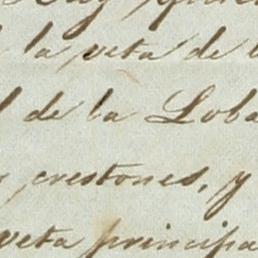 la veta de
de la Loba
crestones, y
veta principa